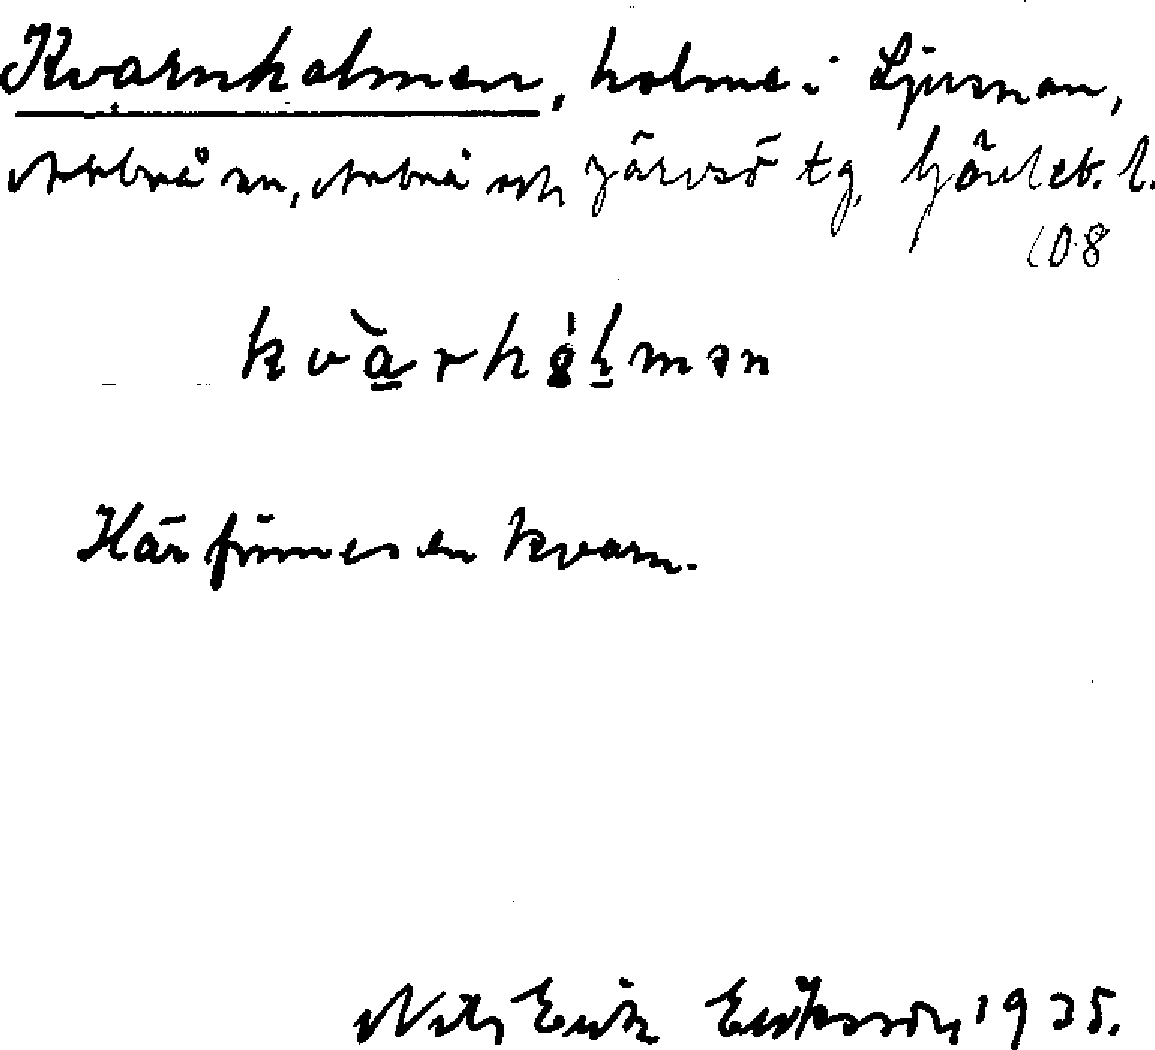 Kvarnholmen, holme i Ljusnan,
Arbrå sn, Arbrå och Järvsö tg, Gävleb. l.
108
kvàrhòlmən
Här finnes en kvarn.
Nils Erik Eriksson 1935.